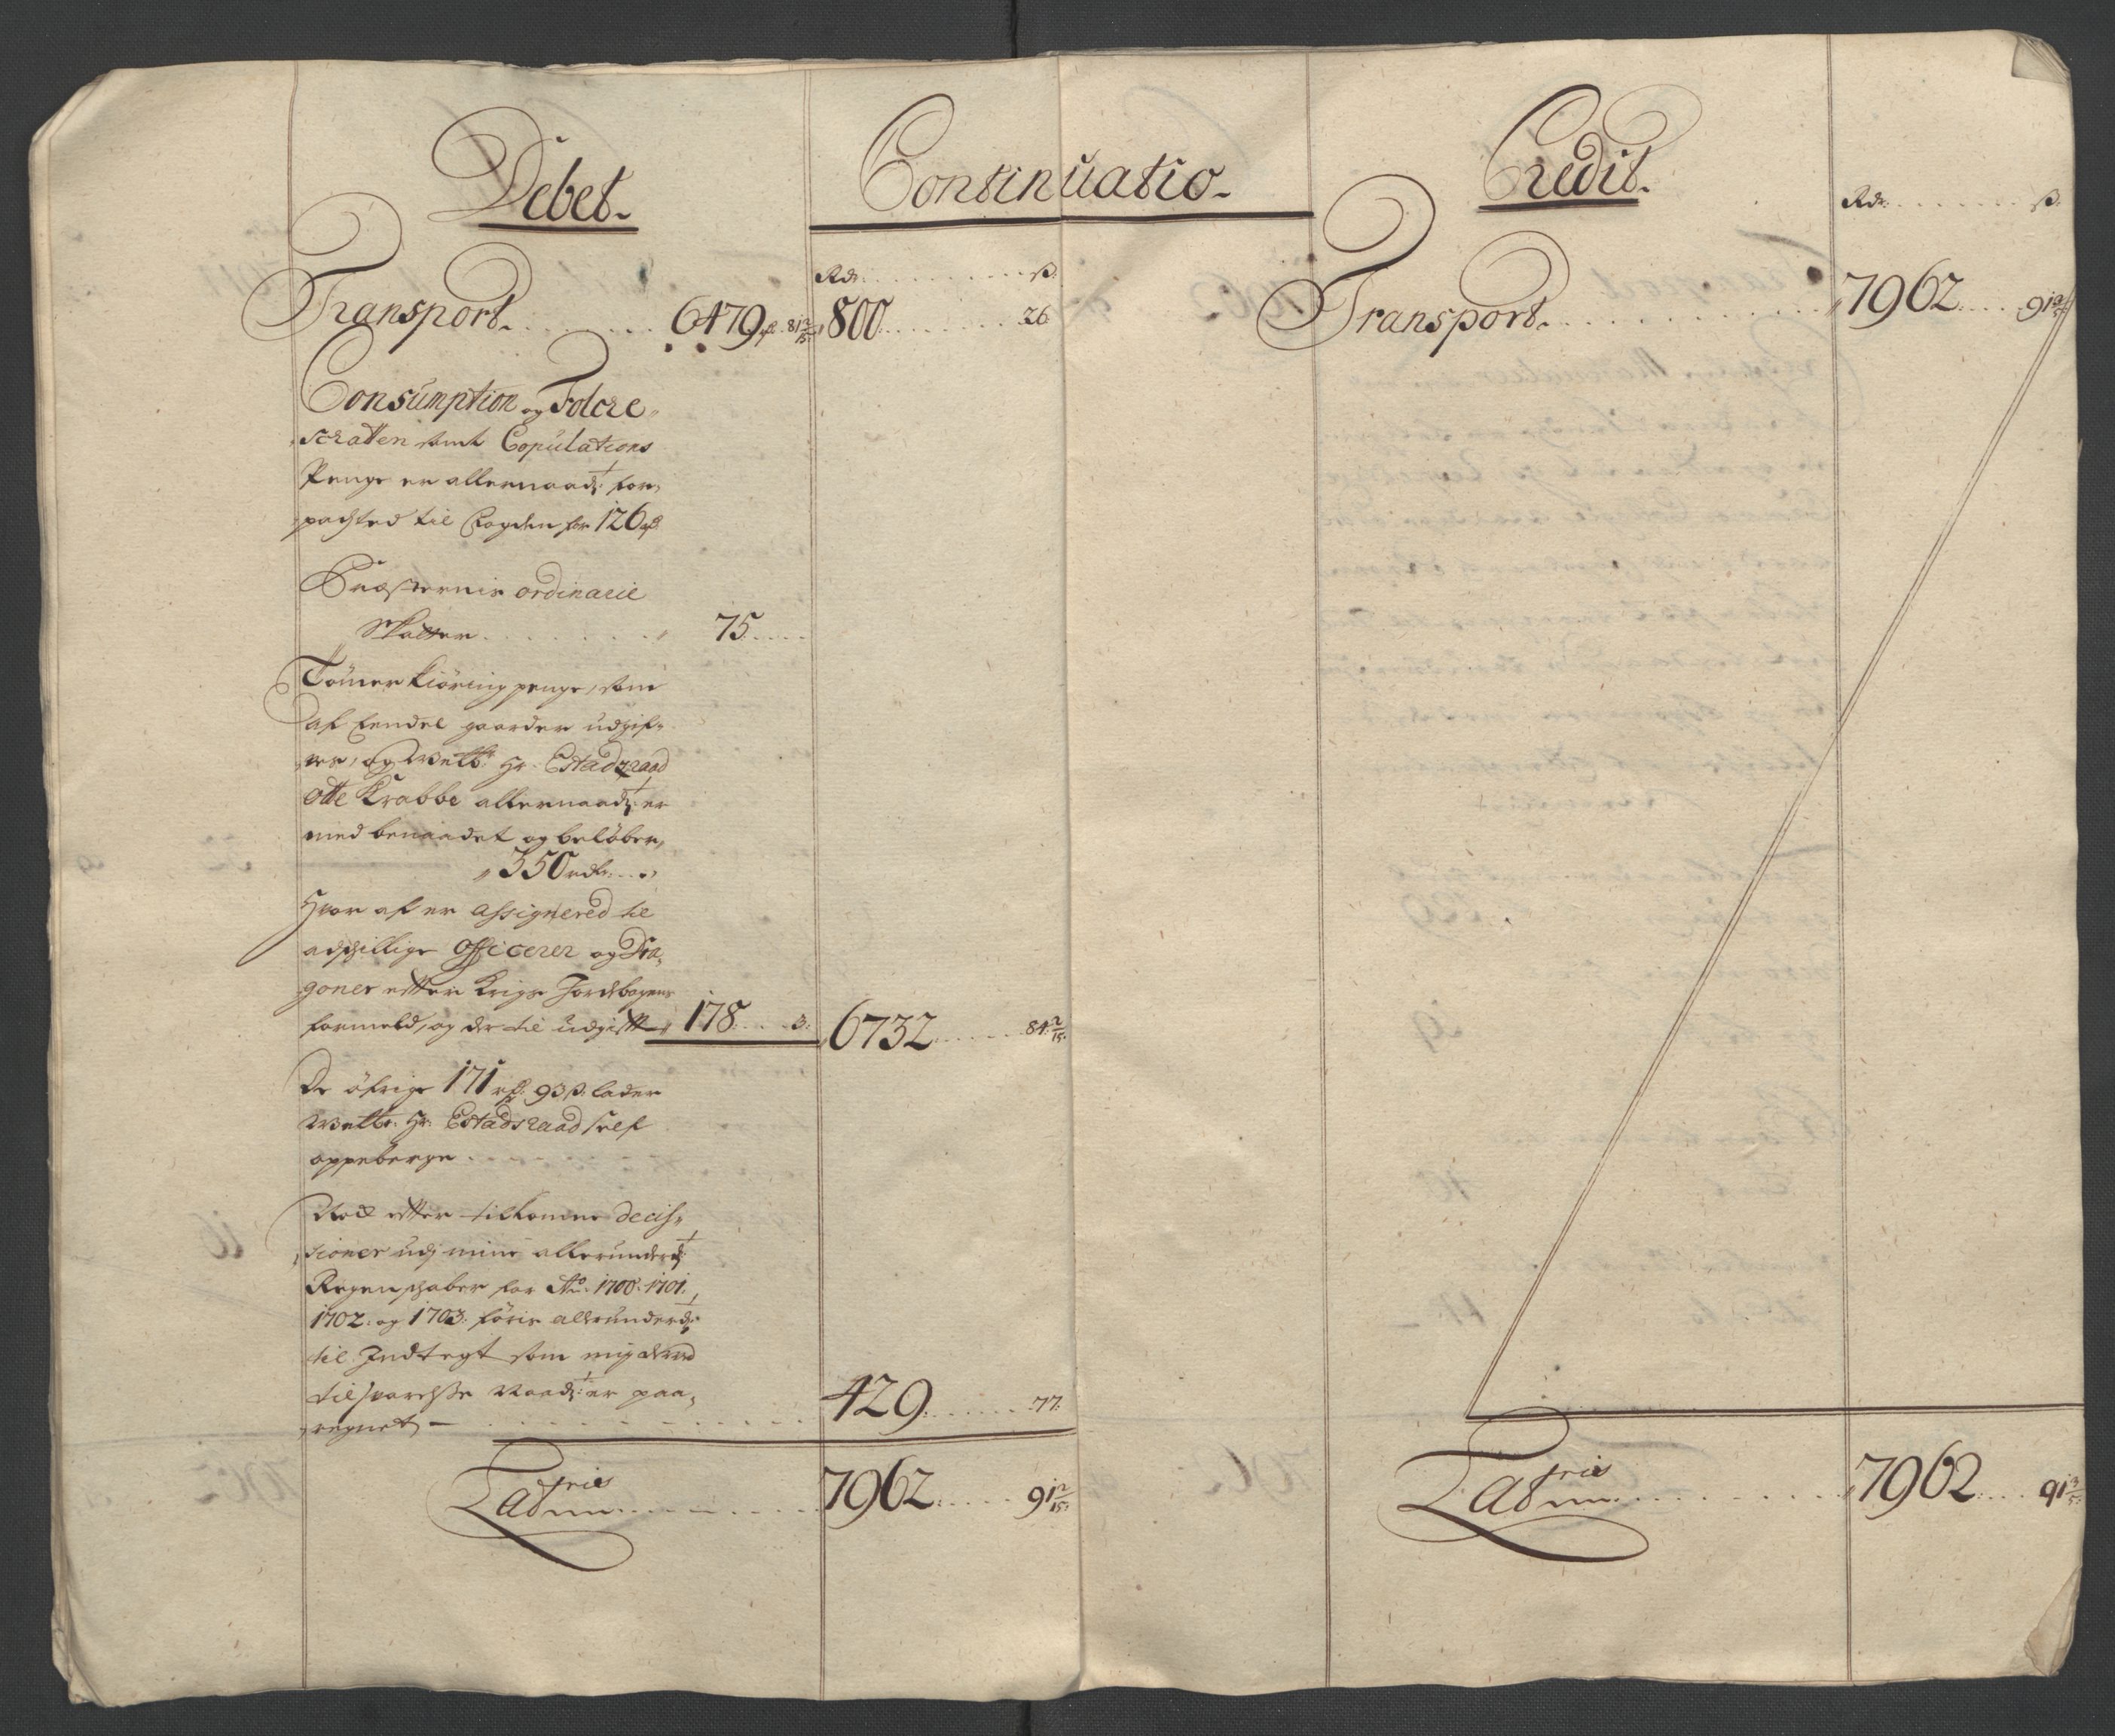 Debet.
Continuatio.
Rdr. ß.
Transport. 6479 rd. 81 2/15 800 26
Consumption og Folcke
schatten samt Copulations
Penge er allernaadst for
pachted til Fogden for 126 rd.
Præsternis ordinarie
Skatter. 75
Tömer kiöring penge, som
af Eendel gaarder udgif
ves, og Welb: Hr. Etadzraad
Otte Krabbe allernaadst: er
med benaadet og belöber,
350 rdr.
Hvor af er assignered til
adschillige Officerer og Dra
goner efter Krigs Jordebogens
formeld, og der til udgifft 178 3. 6732 84 2/15
De öfrige 171 rd. 93 ß. lader
Welb: Hr: Etadsraad self
oppeberge
Noch efter tilkomne decis
sioner udj mine allerunderd:
Regenschaber for Ao. 1700. 1701.
1702. og 1703. föris allerunderd:
til Indtegt som mig derved
til svarelse Naadst: er paa
regnet 429 77.
Latrie 7962 91 2/15
Credit.
Rdr. ß.
Transport. 7962 91 2/15
Latrie 7962 91 2/15